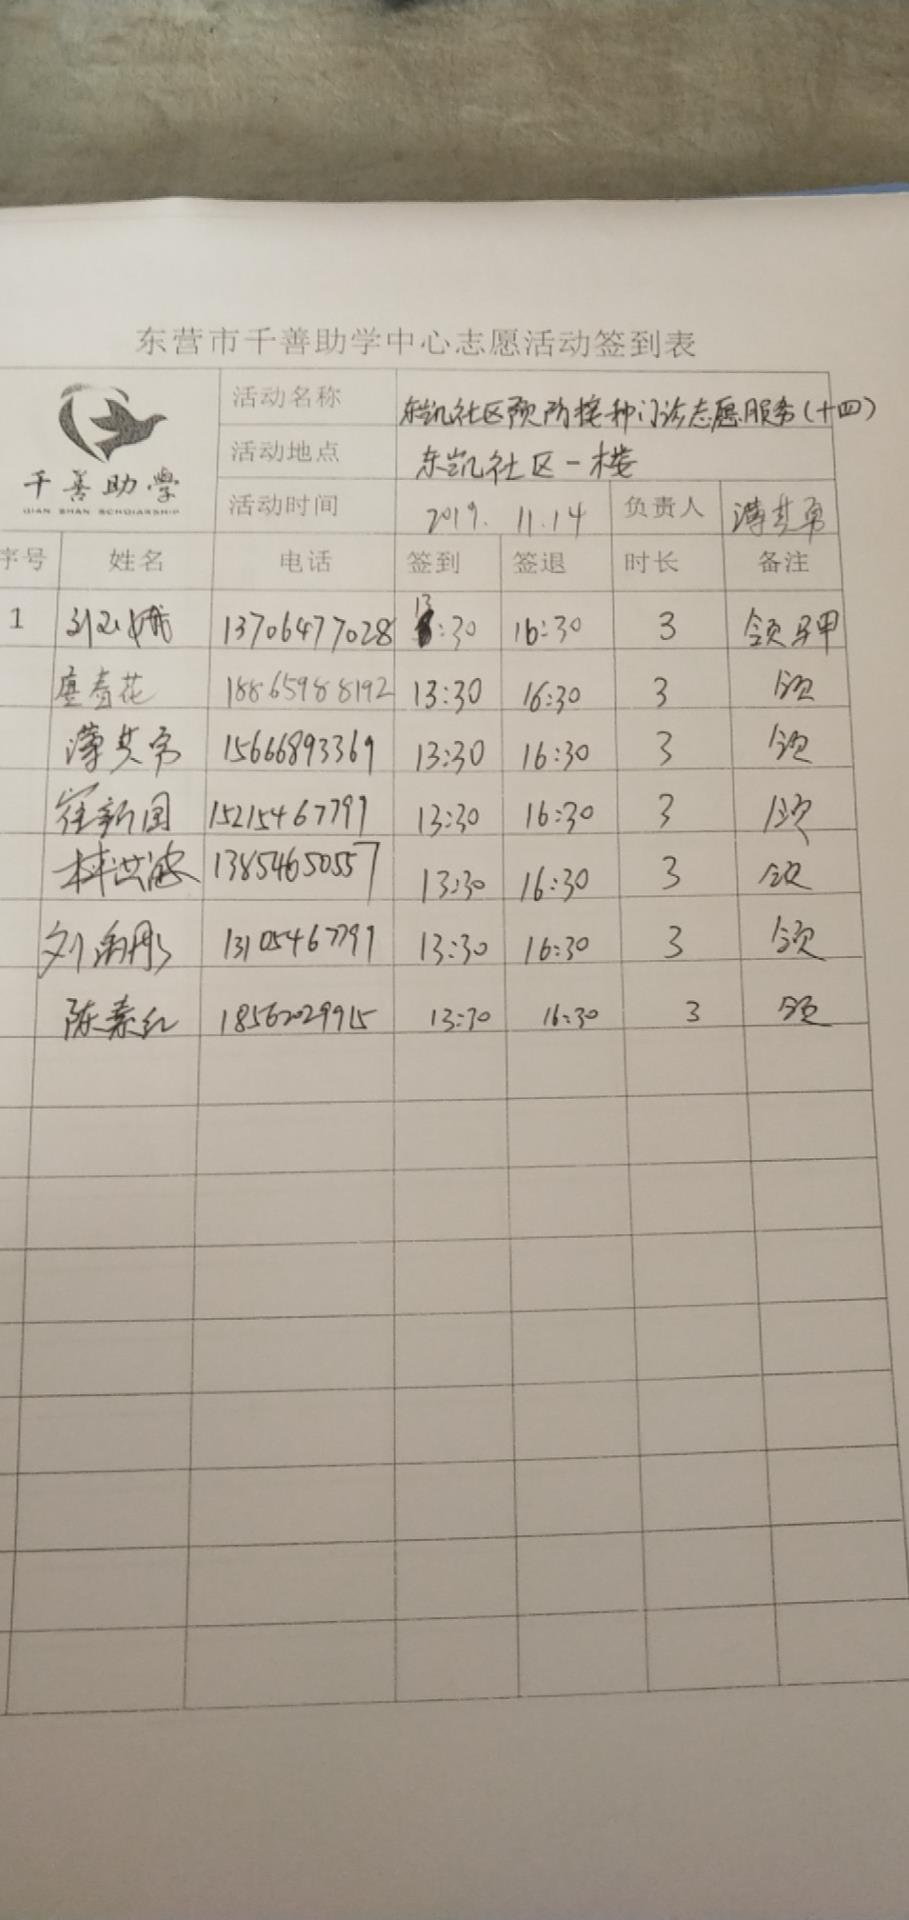 东营市千善助学中心志愿活动签到表
千善助學
QIAN SHAN SCHOLARSHIP
活动名称 东凯社区预防接种门诊志愿服务(十四)
活动地点 东凯社区一楼
活动时间 2019. 11.14 负责人 薄其勇
序号 姓名 电话 签到 签退 时长 备注
1 13706477028 13:30 16:30 3 领马甲
唐春花 18865988192 13:30 16:30 3 领
薄其勇 15666893369 13:30 16:30 3 领
崔新国 15215467791 13:30 16:30 3 领
林洪波 13854650557 13:30 16:30 3 领
13105467791 13:30 16:30 3 领
陈素红 18562029915 13:30 16:30 3 领